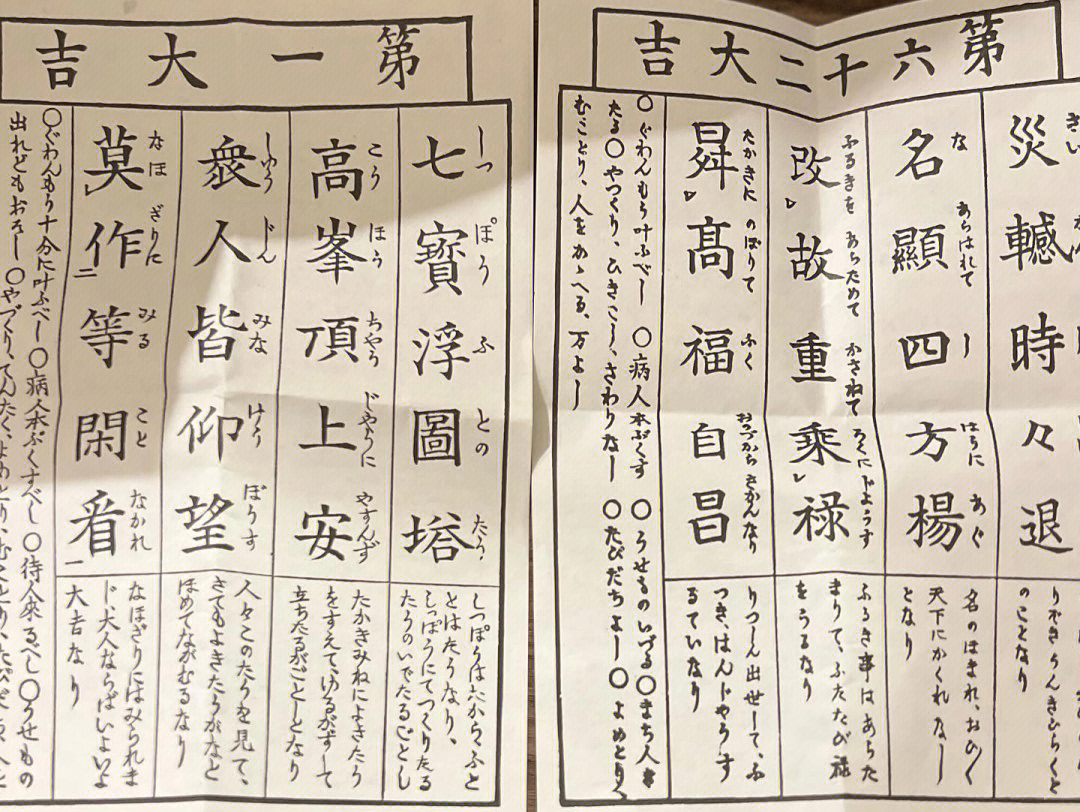 第一大吉
七寶浮圖塔
しつ ぽう ふ との たう
とはたうなり、
しつぽうにてつくりたる
たうのいでたるごとし
高峯頂上安
こう ほう ちやう じやうに やすんず
たかきみねによきたう
をすえてゆるがずして
立ちたるがごとしとなり
衆人皆仰望
しゆう じん みな けう ぼうす
人々このたうを見て、
さてもよきたうかなと
ほめてながむるなり
莫作等閑看
なほ ざりに みる こと なかれ
なほざりにはみられま
じ犬人ならばいよいよ
大吉なり
〇ぐわんもう十分に叶ふべし〇病人本ぶくすべし〇待人來るべし〇うせもの
出れどもおそし〇やづくり、てんたく、よめとり、むことり、たびだち、人を
第六十二大吉
災轗時々退
のことなり
名顯四方楊
な あらはれて し はうに あぐ
名のほまれ、おひ〳〵
天下にかくれなし
となり
改故重乘禄
ふるきを あらためて かさねて ろくにじようず
ふるき事はあらた
まりて、ふたたび禄
をうるなり
昇高福自昌
たかきに のぼりて ふく おのづから さかんなり
りつしん出世して、ふ
つき、はんじやうす
るていなり
〇ぐわんもう叶ふべし〇病人本ぶくす〇うせものいづる〇まち人き
たる〇やつくり、ひきこし、さわりなし〇たびだちよし〇よめとり、
むことり、人をかゝへる、万よし